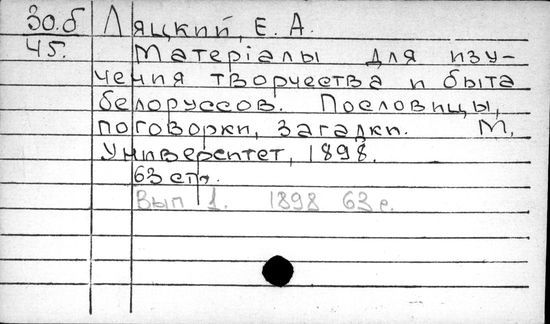 30.б Ляцкий, Е. А.
45. Матерiалы для изу-
чения творчества и быта
белоруссов. Пословицы,
поговорки, загадки. М,
Университет, 1898.
63 стр.
Вып 1. 1898 63 с.